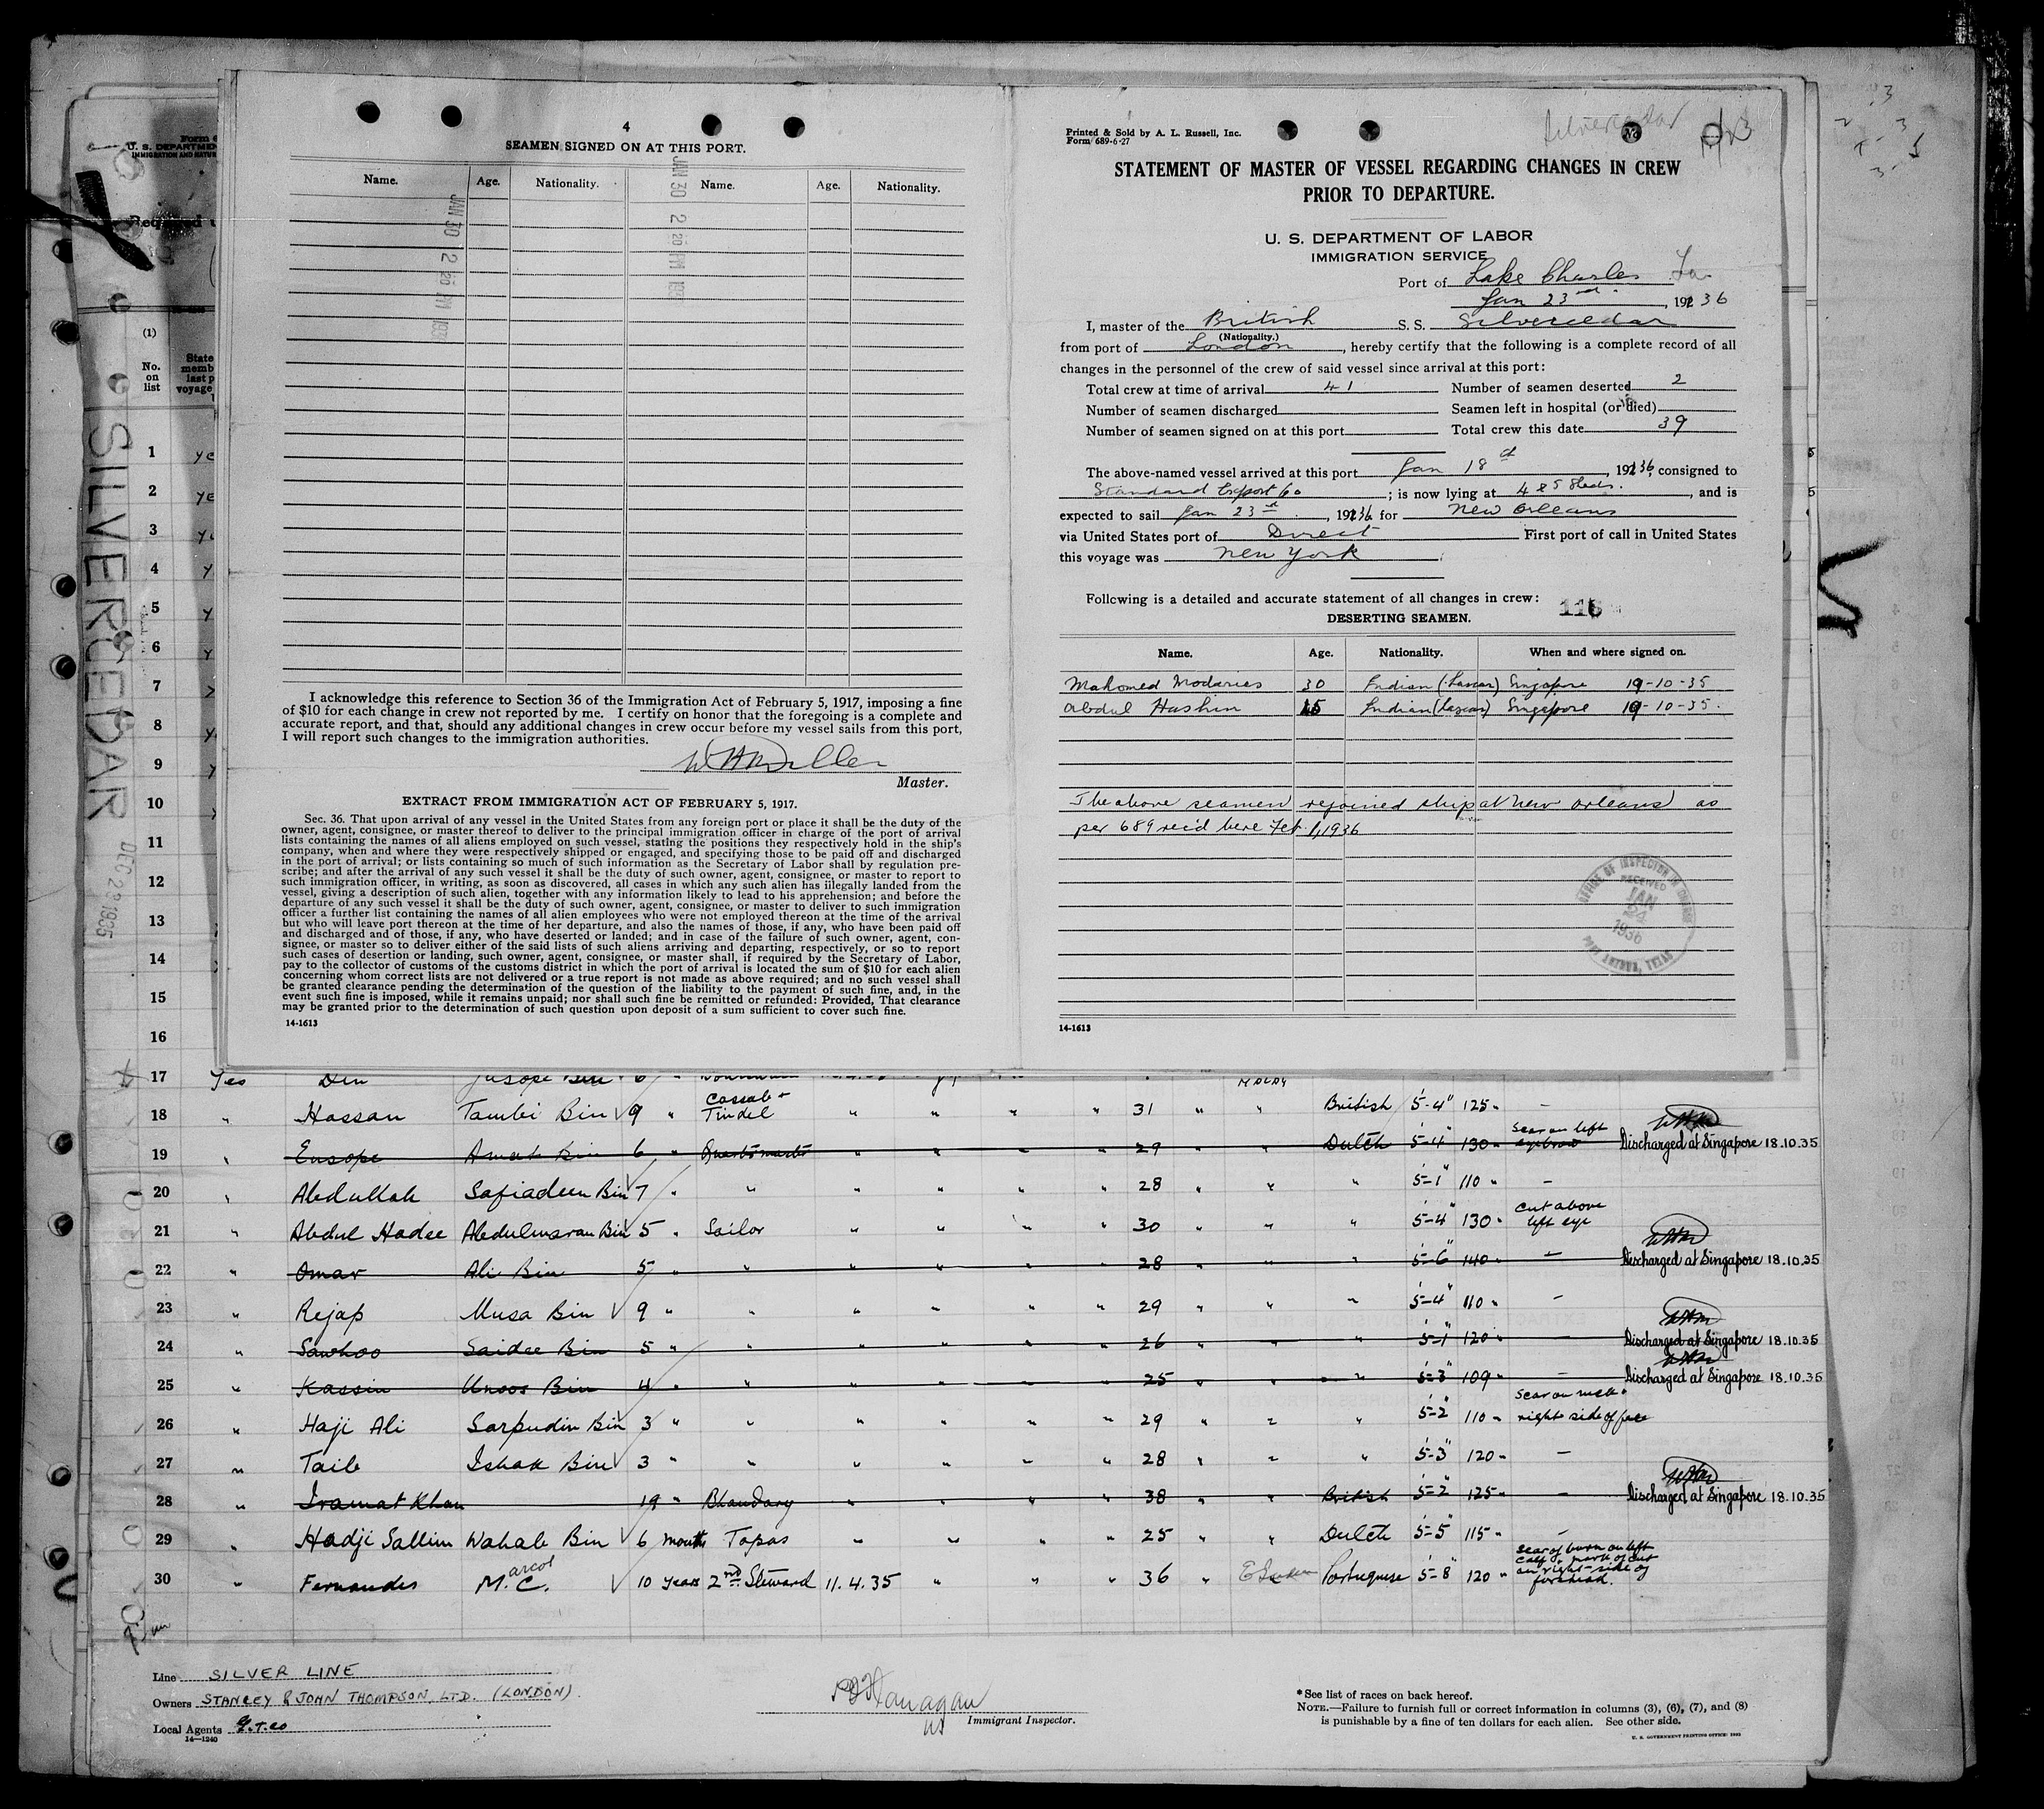 4
SEAMEN SIGNED ON AT THIS PORT.
Name. Age. Nationality. Name. Age. Nationality.
JAN 30 2 20 PM
JAN 30 2 20 PM
I acknowledge this reference to Section 36 of the Immigration Act of February 5, 1917, imposing a fine
of $10 for each change in crew not reported by me. I certify on honor that the foregoing is a complete and
accurate report, and that, should any additional changes in crew occur before my vessel sails from this port,
I will report such changes to the immigration authorities.
Master.
EXTRACT FROM IMMIGRATION ACT OF FEBRUARY 5, 1917.
Sec. 36. That upon arrival of any vessel in the United States from any foreign port or place it shall be the duty of the
owner, agent, consignee, or master thereof to deliver to the principal immigration officer in charge of the port of arrival
lists containing the names of all aliens employed on such vessel, stating the positions they respectively hold in the ship's
company, when and where they were respectively shipped or engaged, and specifying those to be paid off and discharged
in the port of arrival; or lists containing so much of such information as the Secretary of Labor shall by regulation pre-
scribe; and after the arrival of any such vessel it shall be the duty of such owner, agent, consignee, or master to report to
such immigration officer, in writing, as soon as discovered, all cases in which any such alien has illegally landed from the
vessel, giving a description of such alien, together with any information likely to lead to his apprehension; and before the
departure of any such vessel it shall be the duty of such owner, agent, consignee, or master to deliver to such immigration
officer a further list containing the names of all alien employees who were not employed thereon at the time of the arrival
but who will leave port thereon at the time of her departure, and also the names of those, if any, who have been paid off
and discharged and of those, if any, who have deserted or landed; and in case of the failure of such owner, agent, con-
signee, or master so to deliver either of the said lists of such aliens arriving and departing, respectively, or so to report
such cases of desertion or landing, such owner, agent, consignee, or master shall, if required by the Secretary of Labor,
pay to the collector of customs of the customs district in which the port of arrival is located the sum of $10 for each alien
concerning whom correct lists are not delivered or a true report is not made as above required; and no such vessel shall
be granted clearance pending the determination of the question of the liability to the payment of such fine, and, in the
event such fine is imposed, while it remains unpaid; nor shall such fine be remitted or refunded: Provided, That clearance
may be granted prior to the determination of such question upon deposit of a sum sufficient to cover such fine.
14-1613
Printed & Sold by A. L. Russell, Inc.
Form 689-6-27
Silvercedar
No
STATEMENT OF MASTER OF VESSEL REGARDING CHANGES IN CREW
PRIOR TO DEPARTURE.
U. S. DEPARTMENT OF LABOR
IMMIGRATION SERVICE
Port of Lake Charles La
Jan 23rd, 1936
I, master of the British S. S. Silvercedar
(Nationality.)
from port of London, hereby certify that the following is a complete record of all
changes in the personnel of the crew of said vessel since arrival at this port:
Total crew at time of arrival 41 Number of seamen deserted 2
Number of seamen discharged Seamen left in hospital (or died)
Number of seamen signed on at this port Total crew this date 39
The above-named vessel arrived at this port Jan 18th, 1936, consigned to
Standard Export Co; is now lying at 4 & 5 Sheds., and is
expected to sail Jan 23rd, 1936 for New Orleans
via United States port of Direct First port of call in United States
this voyage was New York
Following is a detailed and accurate statement of all changes in crew: 116
DESERTING SEAMEN.
Name. Age. Nationality. When and where signed on.
Mahomed Modaries 30 Indian (Lascar) Singapore 19-10-35
Abdul Hashin Indian (Lascar) Singapore 19-10-35.
The above seamen rejoined ship at New Orleans as
per 689 rec'd here Feb. 1, 1936
OFFICE OF INSPECTOR IN CHARGE
RECEIVED
JAN
24
1936
PORT ARTHUR, TEXAS
14-1613
U. S. DEPARTMEN
IMMIGRATION AND NATUR
Required u
(1)
No.
on
list
State
memb
last p
voyage
SILVERCEDAR
DEC 22 1935
1 ye
2 ye
3
4 y
5 y
6 y
7
8 y
9 y
10
11
12
13
14
15
16
17 Yes Din Jusope Bin 6 "
18 " Hassan Tambi Bin 9 " Cassab & Tindel " " " " 31 " " British 5-4" 125 " -
19 " Eusope Amat Bin 6 " Quartermaster " " " " 29 " " Dutch 5-4" 130 " Scar on left eyebrow Discharged at Singapore 18.10.35
20 " Abdullah Safiadeen Bin 7 " " " " " " 28 " " " 5-1" 110 " -
21 " Abdul Hadee Abdulmaran Bin 5 " Sailor " " " " 30 " " " 5-4" 130 " Cut above left eye
22 " Omar Ali Bin 5 " " " " " " 28 " " " 5-6" 140 " - Discharged at Singapore 18.10.35
23 " Rejap Musa Bin 9 " " " " " " 29 " " " 5-4" 110 " -
24 " Sawhoo Saidee Bin 5 " " " " " " 26 " " " 5-1" 120 " - Discharged at Singapore 18.10.35
25 " Kassin Unoos Bin 4 " " " " " " 25 " " " 5-3" 109 " - Discharged at Singapore 18.10.35
26 " Haji Ali Sarpudin Bin 3 " " " " " " 29 " " " 5-2" 110 " Scar on neck & right side of face
27 " Taib Ishak Bin 3 " " " " " " 28 " " " 5-3" 120 " -
28 " Iramat Khan 19 " Bhandary " " " " 38 " " British 5-2" 125 " - Discharged at Singapore 18.10.35
29 " Hadji Sallim Wahab Bin 6 months Topas " " " " 25 " " Dutch 5-5" 115 " -
30 " Fernandes M. C. arcol 10 years 2nd Steward 11.4.35 " " " 36 " Portuguese 5-8" 120 " Scar of burn on left calf & mark of cut on right side of forehead.
Line SILVER LINE
Owners STANLEY & JOHN THOMPSON, LTD. (LONDON).
Local Agents
14—1240
Immigrant Inspector.
* See list of races on back hereof.
NOTE.—Failure to furnish full or correct information in columns (3), (6), (7), and (8)
is punishable by a fine of ten dollars for each alien. See other side.
U. S. GOVERNMENT PRINTING OFFICE